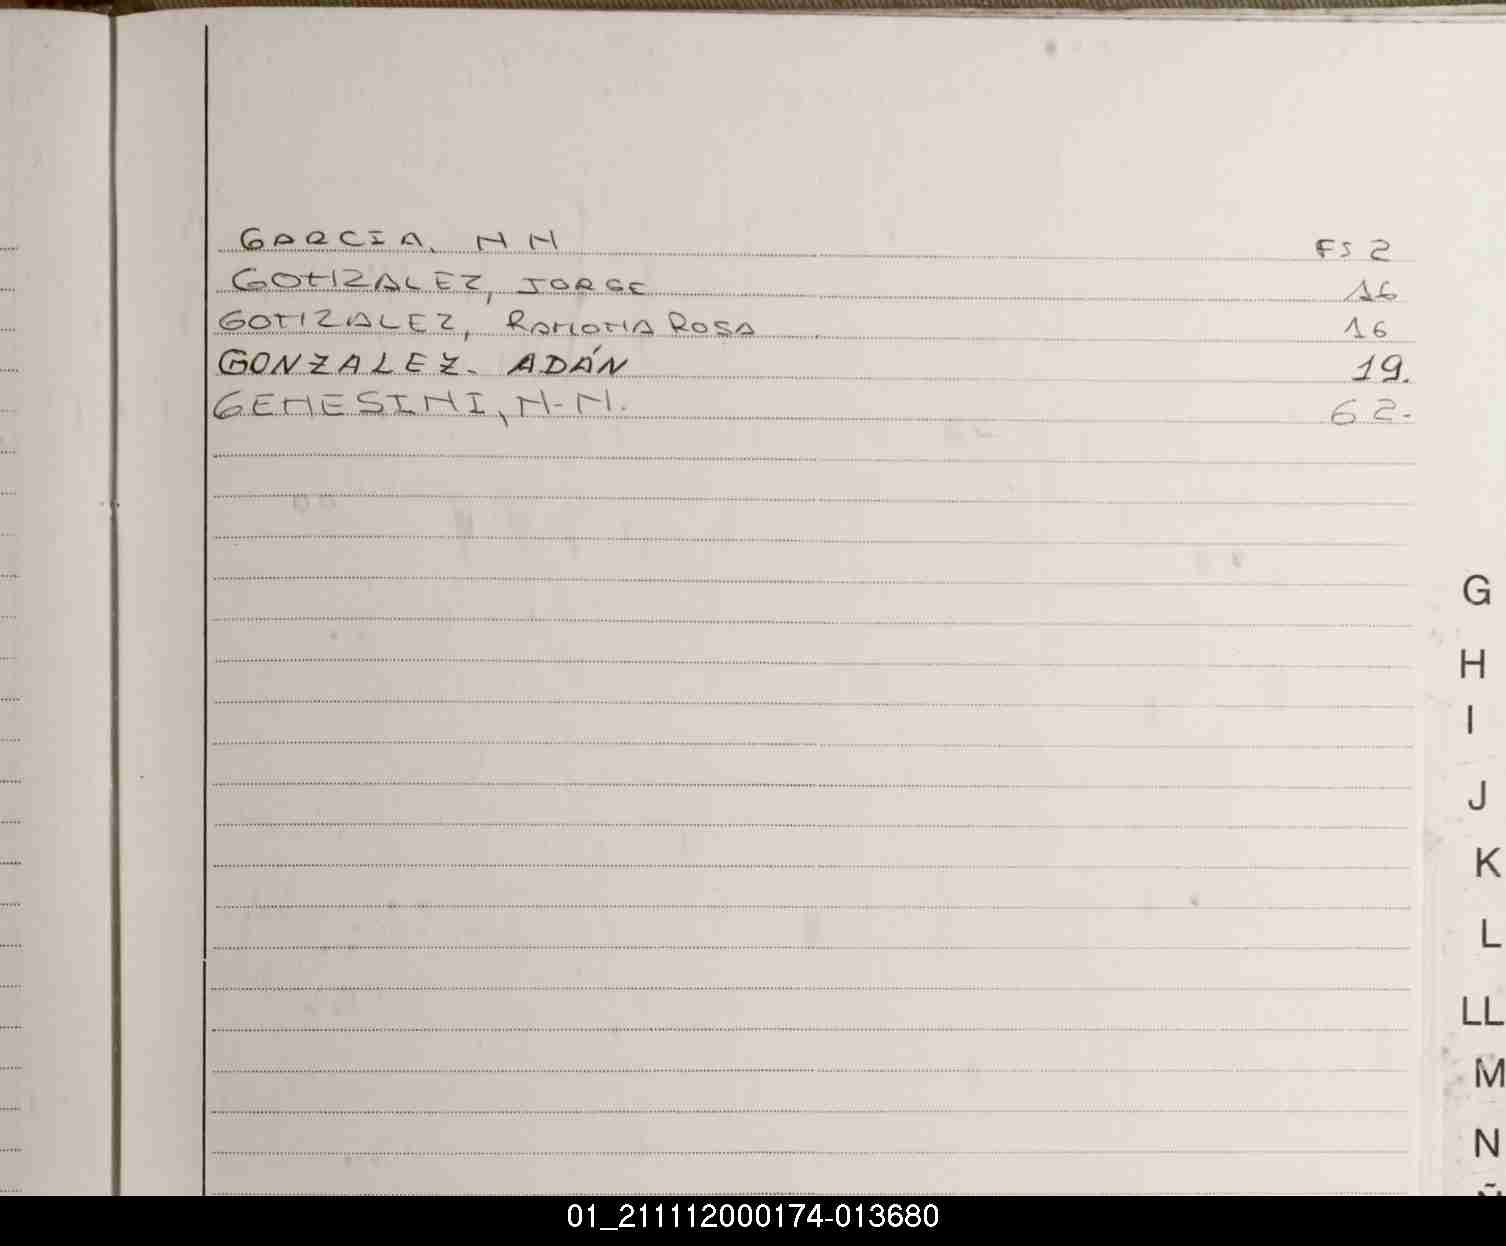 GARCIA, NN FS 2
GONZALEZ, JORGE 16
GONZALEZ, RAMONA ROSA 16
GONZALEZ. ADÁN 19.
GENESINI, N-N. 62-
G
H
I
J
K
L
LL
M
N
Ñ
01_211112000174-013680